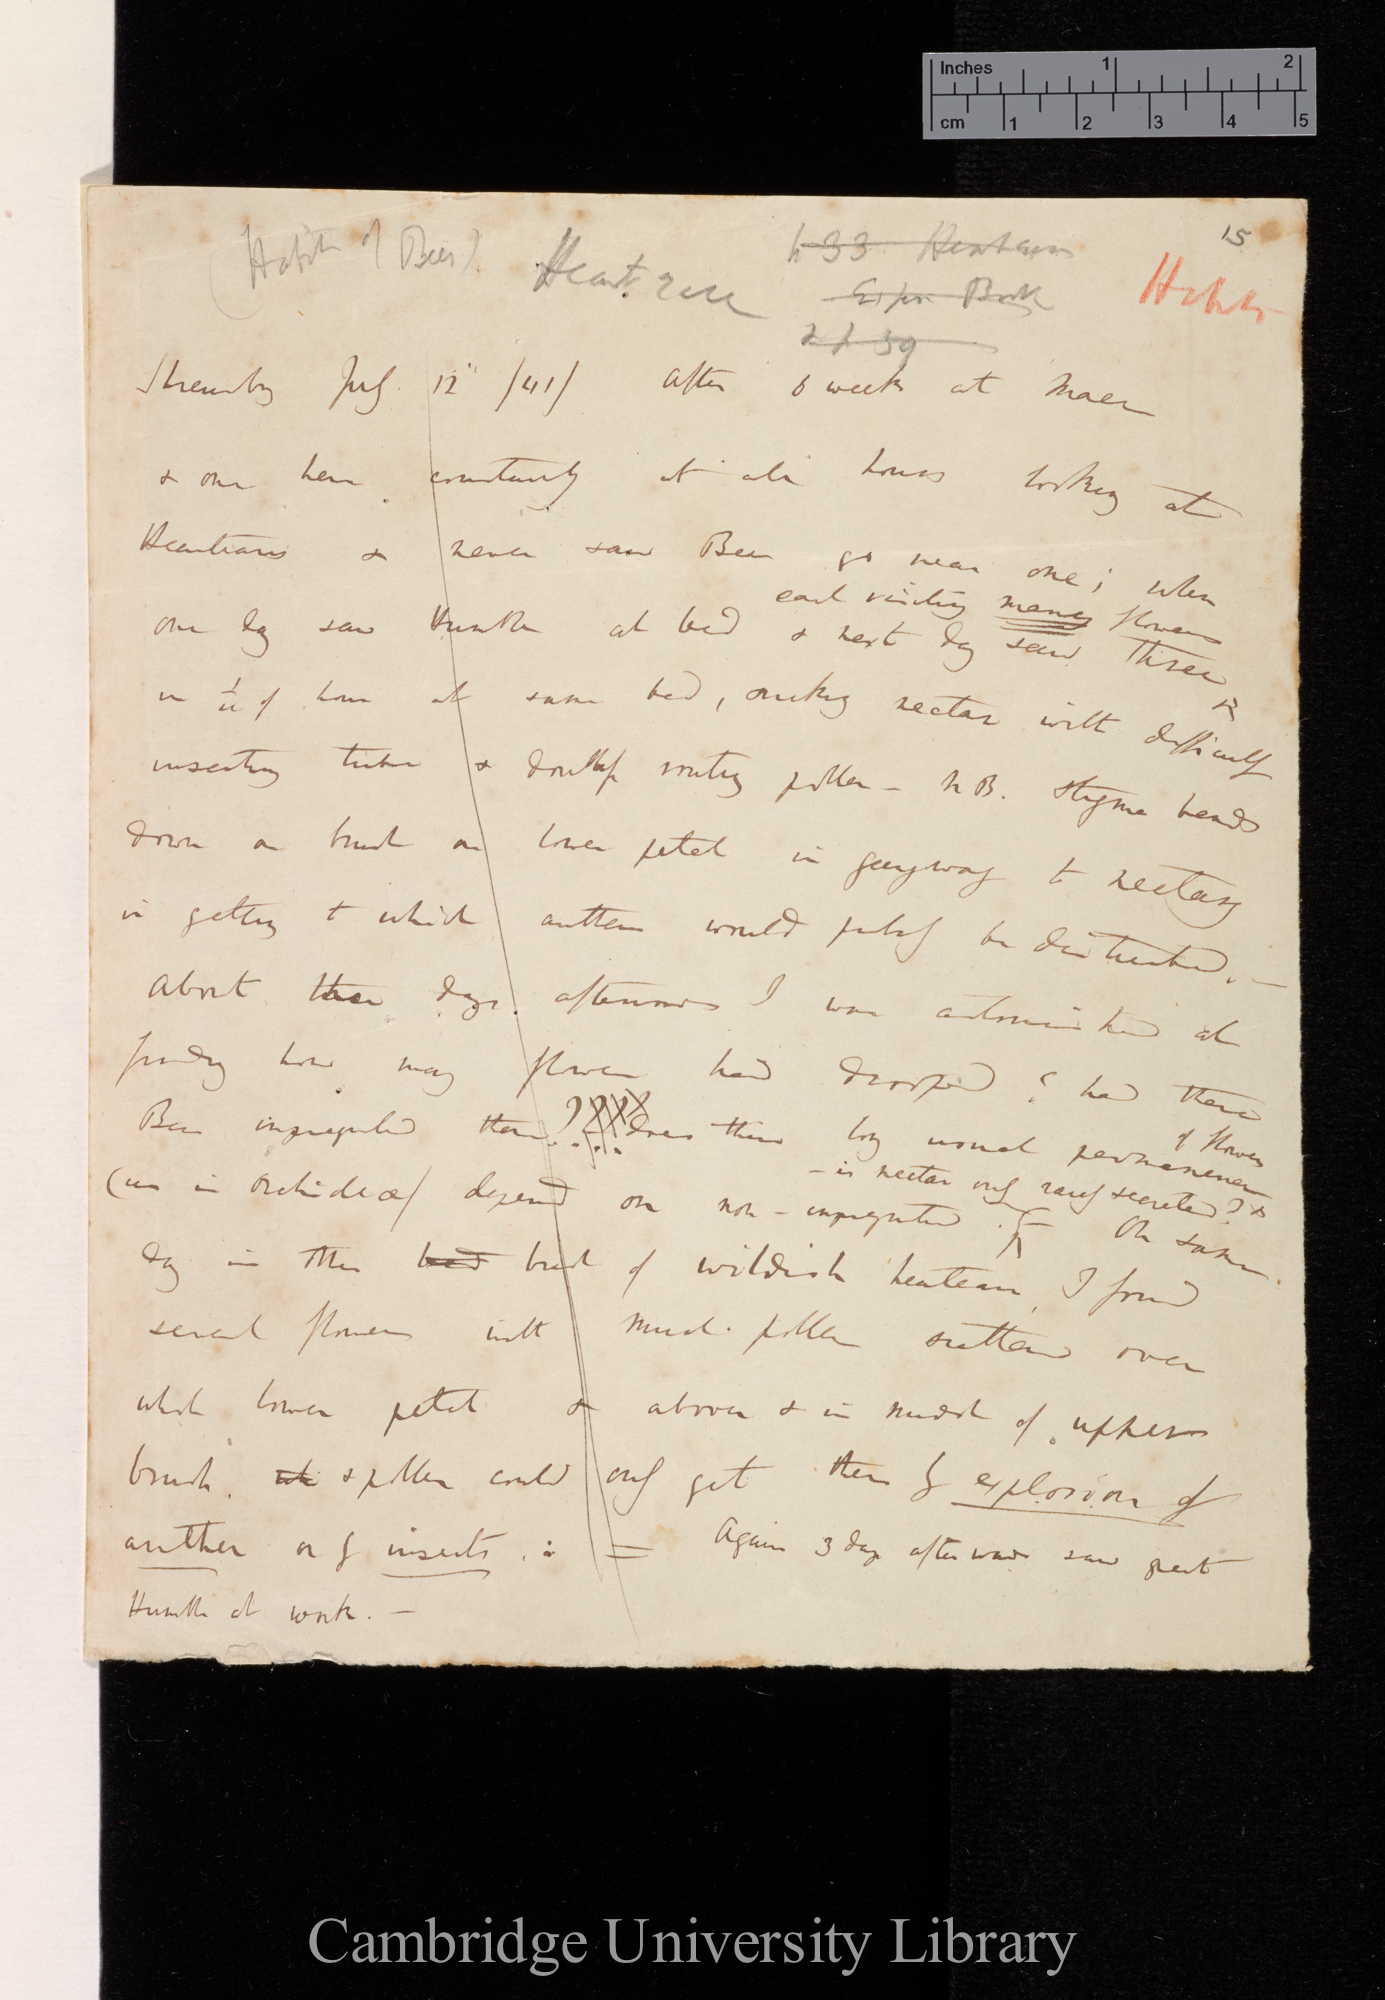 Inches 1 2
cm 1 2 3 4 5
15
(Habits of Bees)
Heartsease
p 33 Heartsease
Exper Book
Habits
Shrewsbury July 12th /41/ After 6 weeks at Maer
& one here constantly at all hours looking at
Heartsease & never saw Bee go near one; when
each visiting many flowers
one day saw Humble at bed & next day saw three
in of hour at same bed, sucking nectar with difficulty
inserting tube & doubtless routing pollen — N.B. Stigma bends
down on brush on lower petal in gangway to nectary
in getting to which anthers would probably be disturbed. —
About three days afterwards I was astonished at
finding how many flowers had dropped; had these
Bees impregnated them? does the long usual permanence
of flowers
(as in Orchideæ) depend on non-impregnation.
– is nectar only rarely secreted? &
On same
day in the bed of wildish heartsease, I found
several flowers with much pollen scattered over
whole lower petal & above & in midst of upper
brush. & pollen could only get there by explosion of
anther or by insects. : = Again 3 days afterwards saw great
Humble at work. —
Cambridge University Library